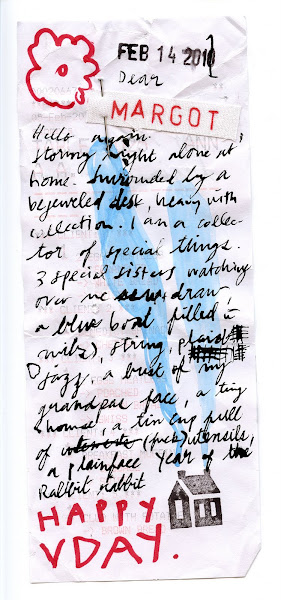 FEB 14 2011
Dear
MARGOT
Hello again.
Stormy night alone at
home. Surrounded by a
bejeweled desk, heavy with
collection. I am a collec-
tor of special things.
3 special sisters watching
over me draw,
a blue boat filled w
nibs, string, plaid
jazz, a bust of my
grandpas face, a tiny
house, a tin cup full
of (pick) utensils,
a plainface Year of the
Rabbit rabbit
HAPPY
VDAY.